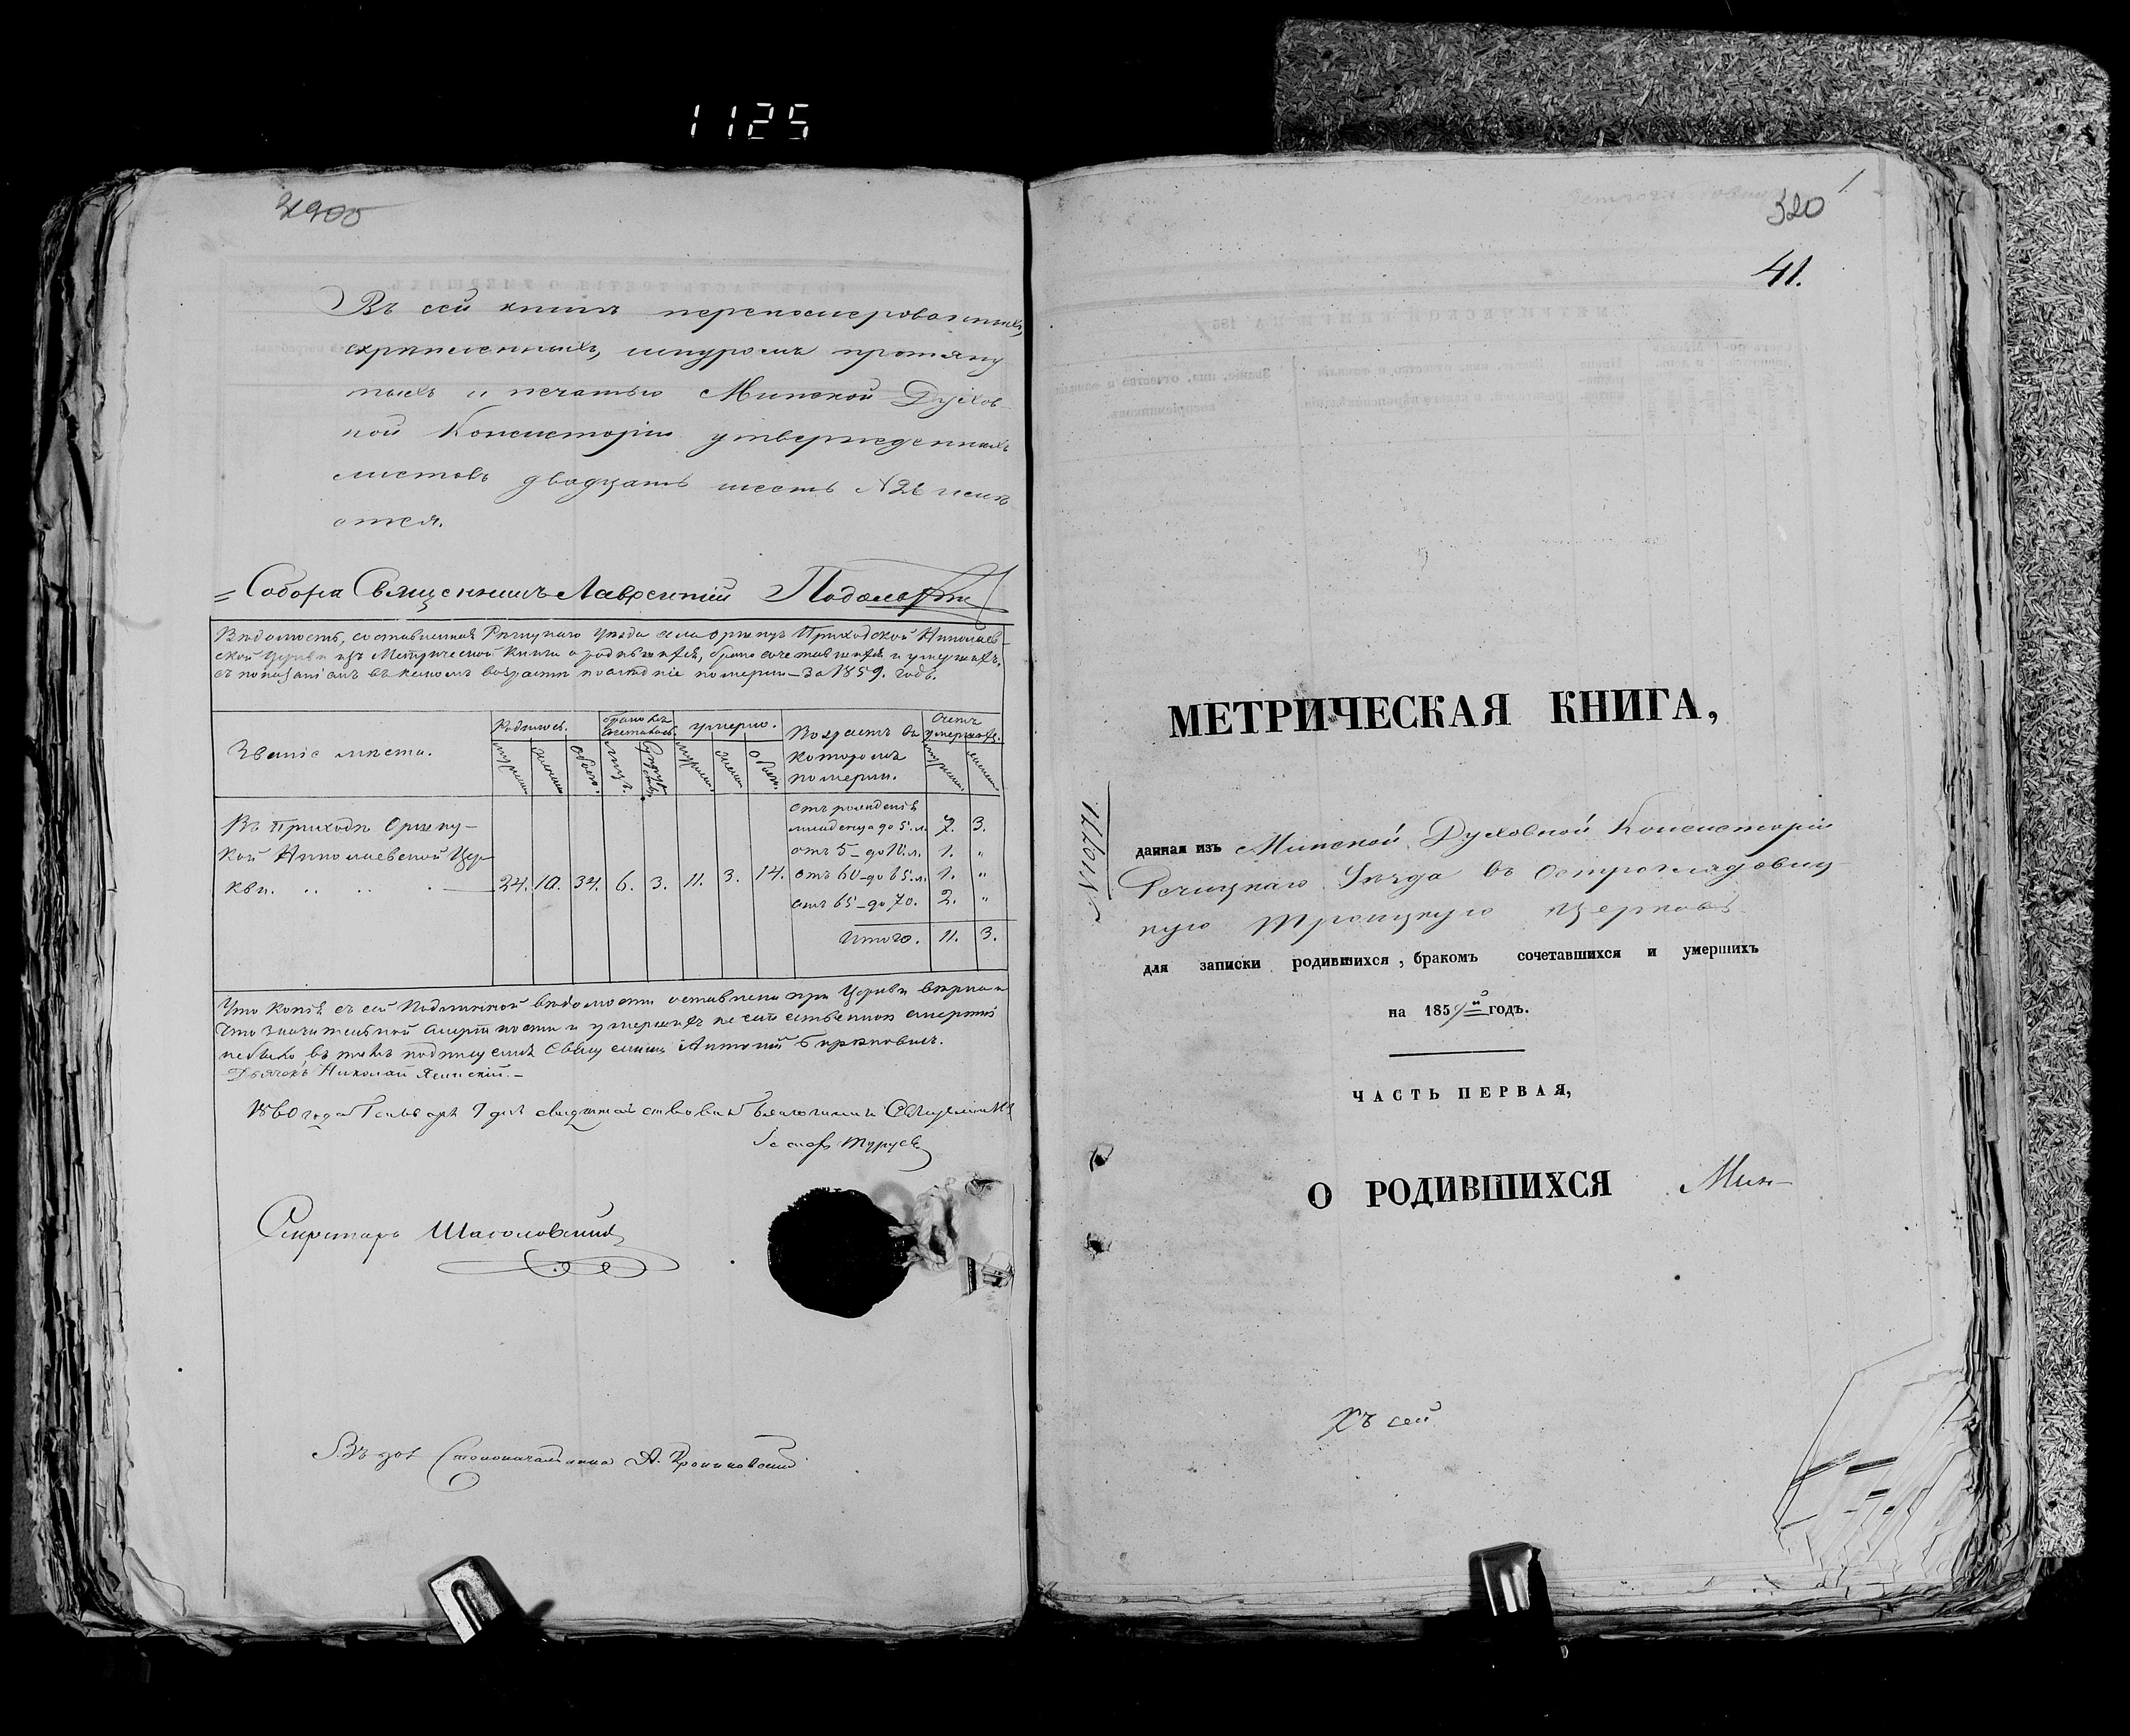 1125
Въ сей книгѣ перенумерованныхъ,
скрѣпленныхъ, шнуромъ протяну
тыхъ и печатью Минской Духов
ной Консисторіи утвержденныхъ
листовъ двадцать шесть №26 имѣ
ются.
Собора Священникъ Лаврентій
Вѣдомость, составленная Рѣчицкаго Уѣзда села Приходской Николаев-
ской Церкви изъ Метрической Книги о родившихся, бракосочетавшихся и умершихъ,
съ показаніемъ въ какомъ возрастѣ послѣдніе померли за 1859. годъ.
Званіе мѣста.
Родилось.
браковъ сочеталось.
умерло.
Возрастъ въ
которомъ
померли.
Счетъ
умершихъ.
Въ Приходѣ
кой Николаевской Цер
кви. 24. 10. 34. 6. 3. 11. 3. 14.
отъ рожденія
младенца до 5. л. 7. 3.
отъ 5 - до 10. л. 1. "
отъ 60 - до 65. л. 1. "
отъ 65 - до 70. 2. "
Итого. 11. 3.
Что Копія съ сей подлинной вѣдомости оставлена при Церкви вѣрная и
что значительной смертности и умершихъ не естественною смертію
не было въ томъ подписуемся Священникъ Антоній
Дьячекъ Николай
1860 года Генваря 7 дня свидѣтельствовалъ Благочинный Священникъ
Секретарь
Столоначальника А.
320
41.
МЕТРИЧЕСКАЯ КНИГА,
данная изъ Минской Духовной Консисторіи
Речицкаго Уѣзда въ Остроглядовиц-
кую Троицкую церковь
для записки родившихся, бракомъ сочетавшихся и умершихъ
на 1859й годъ.
ЧАСТЬ ПЕРВАЯ,
О РОДИВШИХСЯ Мин-
Къ сей